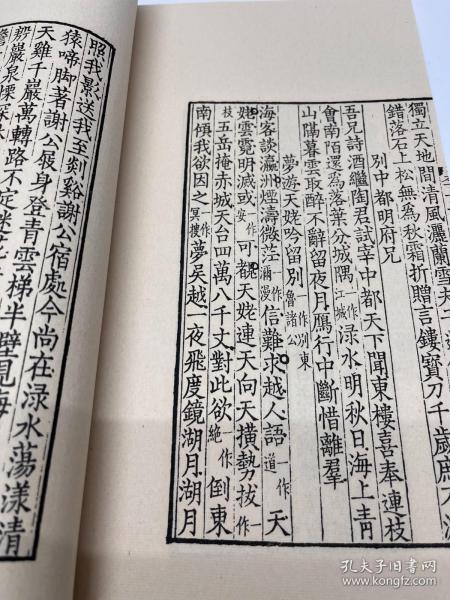 獨立天地間清風灑蘭雪夫
錯落石上松無為秋霜折贈言鏤寶刀千歲庶不
別中都明府兄
吾兄詩酒繼陶君試宰中都天下聞東樓喜奉連枝
會南陌還為落葉分城隅一作江城渌水明秋日海上青
山隔暮雲取醉不辭留夜月鴈行中斷惜離羣
夢遊天姥吟留別一作別東魯諸公
海客談瀛洲煙濤微茫一作瀰漫信難求越人語一作道天
姥雲霓明滅或一作安可覩天姥連天向天橫勢拔一作
枝五岳掩赤城天台四萬八千丈對此欲一作絕倒東
南傾我欲因之一作冥搜夢吳越一夜飛度鏡湖月湖月
照我影送我至剡谿謝公宿處今尚在渌水蕩漾清
猿啼脚著謝公屐身登青雲梯半壁見海
天雞千巖萬轉路不定迷花
殷巖泉慄深林
孔夫子旧书网
www.kongfz.com